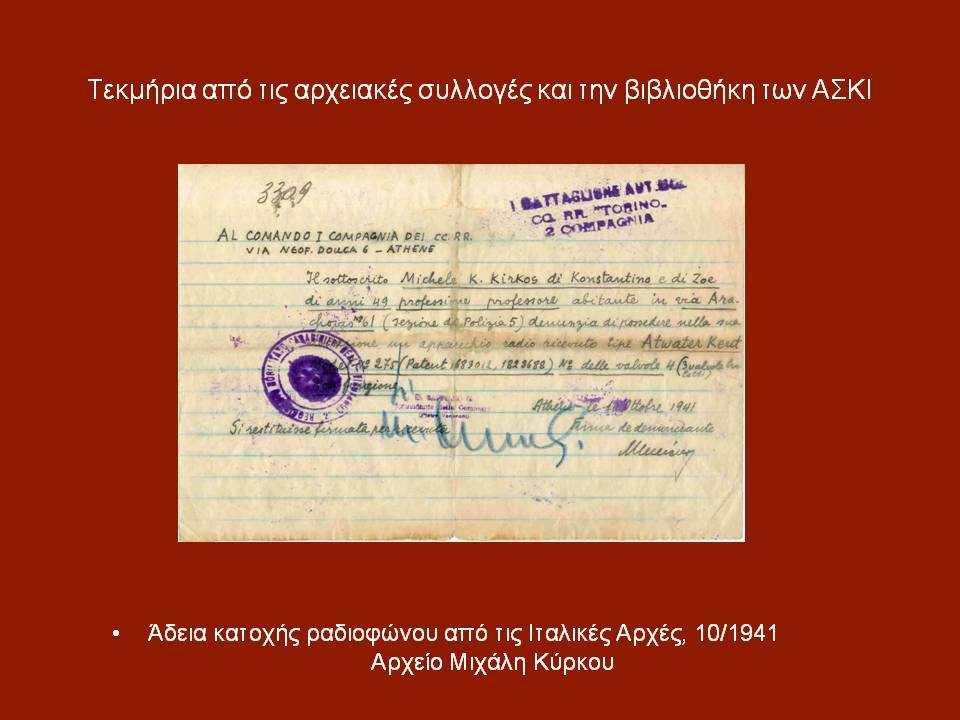 Τεκμήρια από τις αρχειακές συλλογές και την βιβλιοθήκη των ΑΣΚΙ
3309
1 BATTAGLIONE AUT.
CC. RR. "TORINO"
2 COMPAGNIA
AL COMANDO I COMPAGNIA DEI CC. RR.
VIA NEOF. DOUCA 6 – ATHENE
Il sottoscrito Michele K. Kirkos di Konstantino e di Zoe
di anni 49 professione professore abitante in via Ara-
chovis 61 (sezione de Polizia 5) denunzia di possedere nella sua
un apparechio radio ricevuto tipe Atwater Kent
No 275 (Patent 1689012, 1829688) No delle valvole 4
Athene le Ottobre 1941
Si restituisce firmata per ricevuta
Firma de denunciante
• Άδεια κατοχής ραδιοφώνου από τις Ιταλικές Αρχές, 10/1941
Αρχείο Μιχάλη Κύρκου